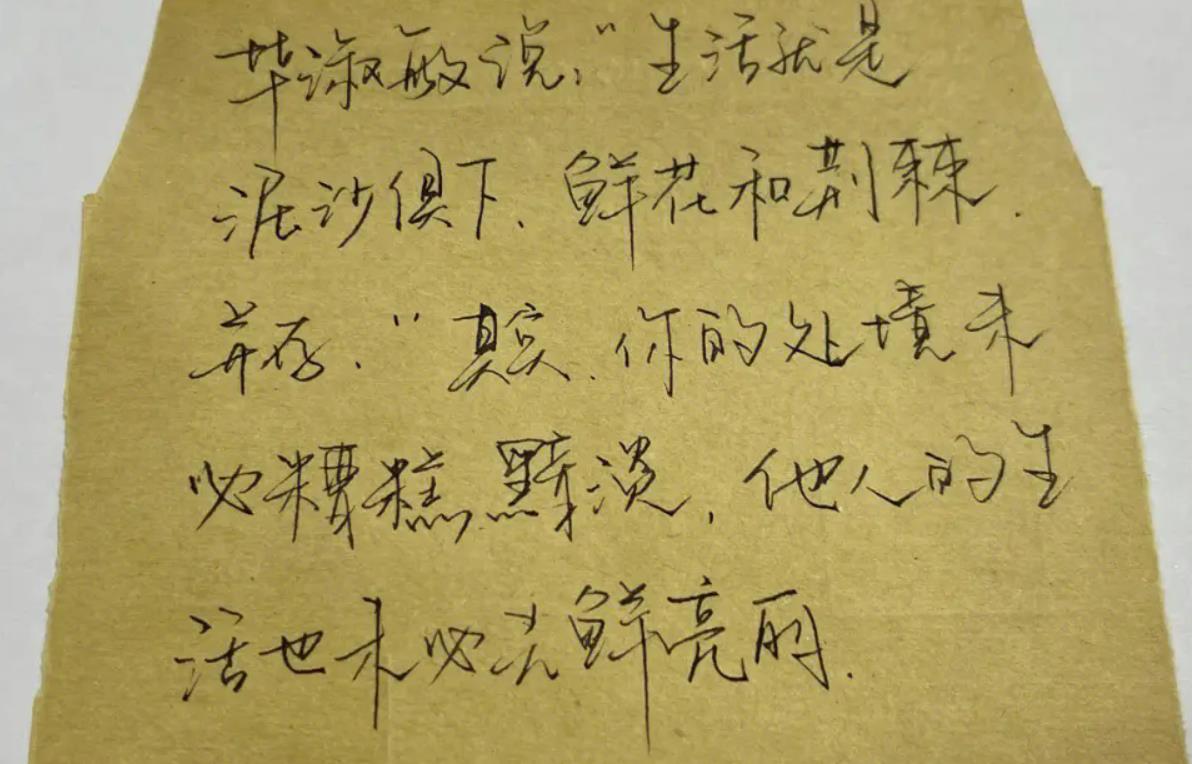 毕淑敏说:“生活就是
泥沙俱下、鲜花和荆棘
并存.”其实、你的处境未
必糟糕黯淡,他人的生
活也未必光鲜亮丽.